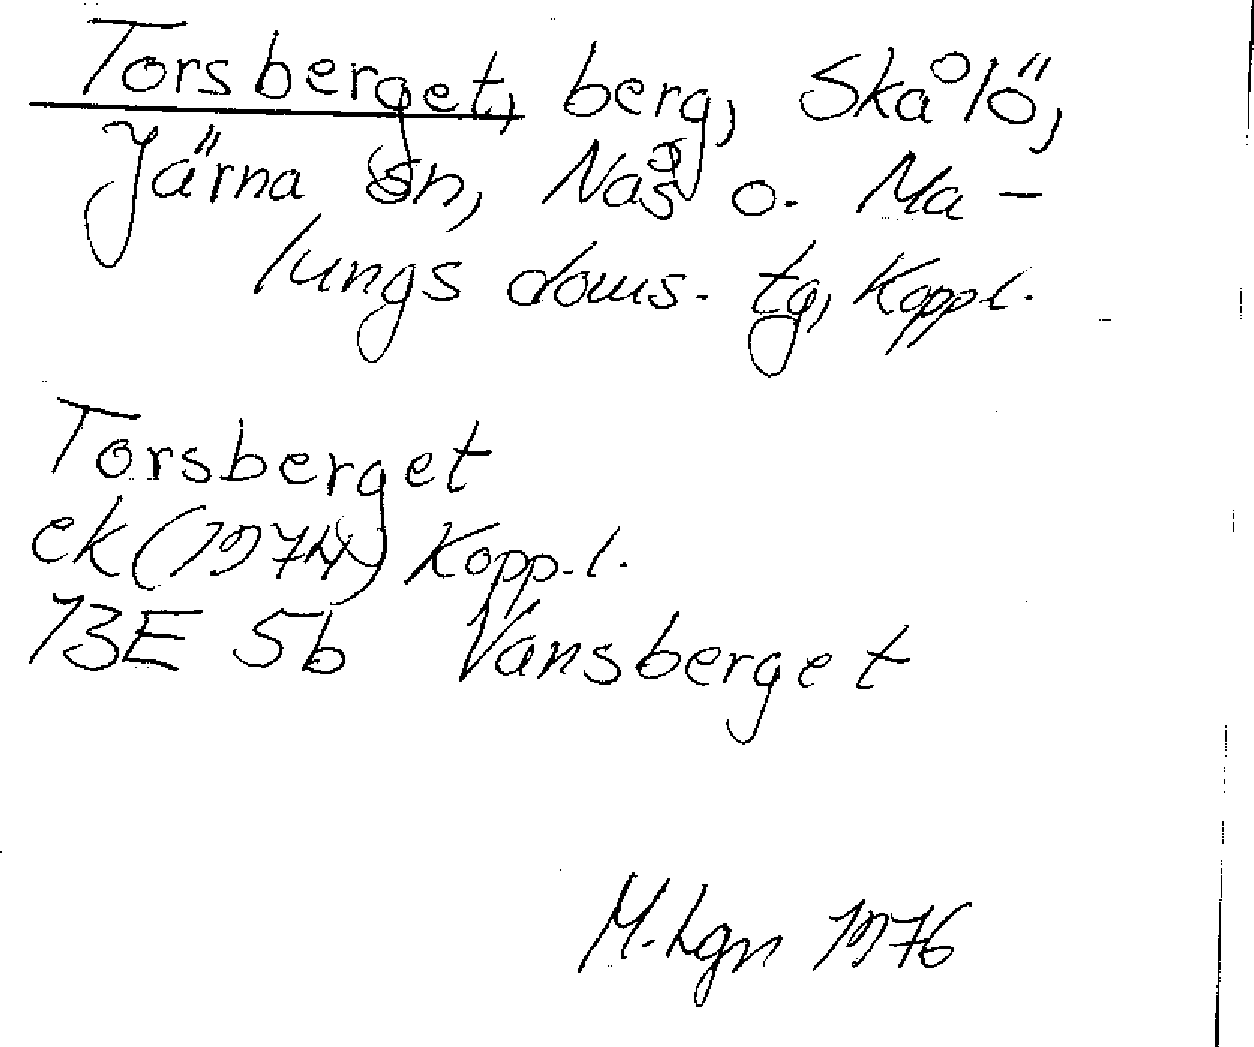 Torsberget, berg, Skålö,
Järna sn, Nås o. Ma-
lungs doms. tg, Koppl.
Torsberget
ek (1974) Kopp.l.
13E 5b Vansberget
M.Lgn 1976